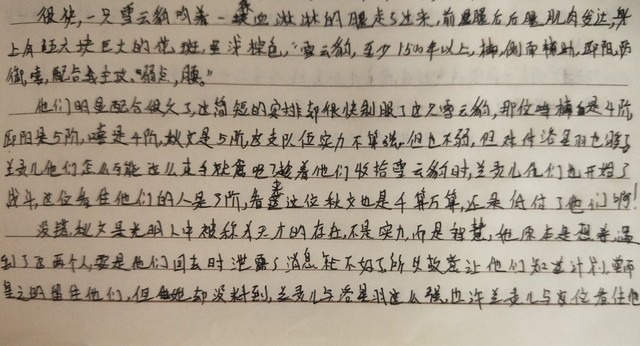 很快,一只雪云豹叼着一血淋淋的腿走了过来,前腿后腿肌肉发达,身
上有巨大块巨大的花斑,呈深棕色,"雪云豹,至少1500年以上,楠,侧面辅助,欧阳,防
御,嘻,配合我主攻。"弱点,腰。"
他们明显配合很久了,这简短的安排却很快制服了这只雪云豹,那位楠是4阶,
欧阳是5阶,嘻是4阶,秋文是5阶,这支队伍实力不算强,但也不弱,但洛星羽也够了
兰灵儿他们怎么可能这么束手就擒呢?趁着他们收拾雪云豹时,兰灵儿他们也开始了
战斗,这位看住他们的人是3阶,看来这位秋文也是千算万算,还是低估了他们啊!
没错,秋文是光明人中被称为天才的存在,不是实力,而是智慧,她原本是想遇
到了这两个人,要是他们回去时泄露了消息就不好了,所以故意让他们知道计划,
名之的留住他们,但她却没料到,兰灵儿与洛星羽这么强,也许兰灵儿与这位看住他